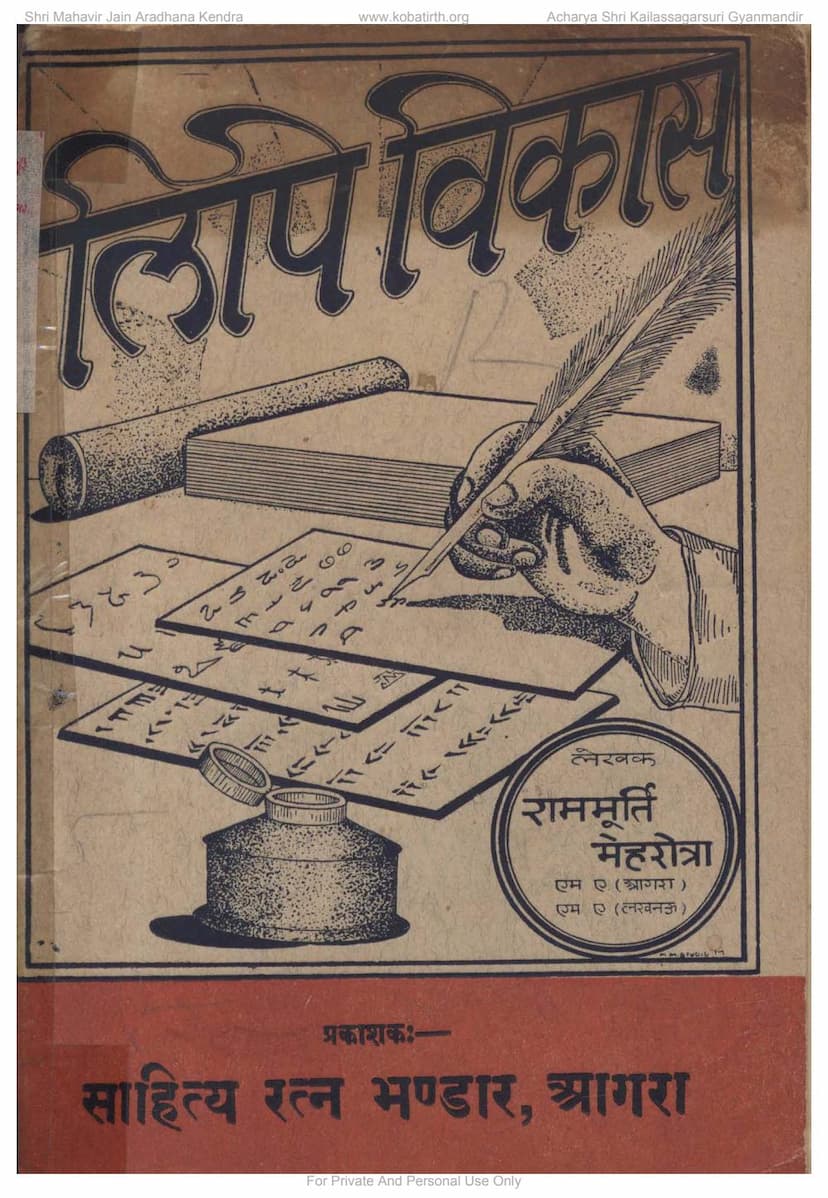 Shri Mahavir Jain Aradhana Kendra
www.kobatirth.org
Acharya Shri Kailassagarsuri Gyanmandir
लिपि विकास
लेखक
राममूर्ति
मेहरोत्रा
एम ए (आगरा)
एम ए (लखनऊ)
प्रकाशकः—
साहित्य रत्न भण्डार, आगरा
For Private And Personal Use Only